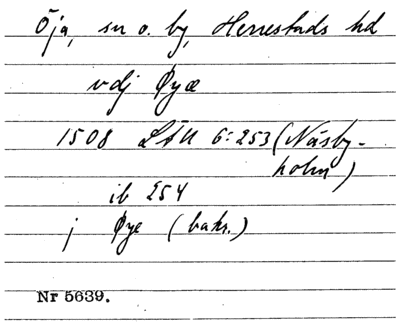 Öja, sn o. by, Herrestads hd
vdj Øyæ
1508 LÅU G: 253 (Näsby-
holm)
ib 254
j Øye (baks.)
Nr 5639.